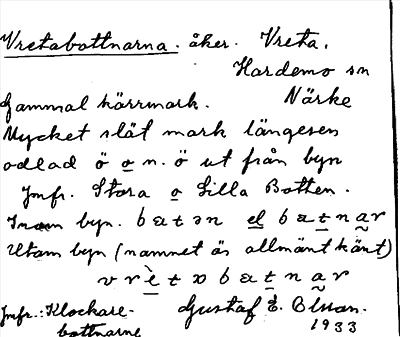 Vretabottnarna. åker. Vreta.
Hardemo sn
Närke
Gammal kärrmark.
Mycket slät mark längesen
odlad ö o n. ö ut från byn
Jmfr. Stora o Lilla Botten.
Inom byn. batən el batnar
Utom byn (namnet är allmänt känt)
vrètabatnar
Jmfr.: Klockare-
bottnarne
Gustaf E.
1933